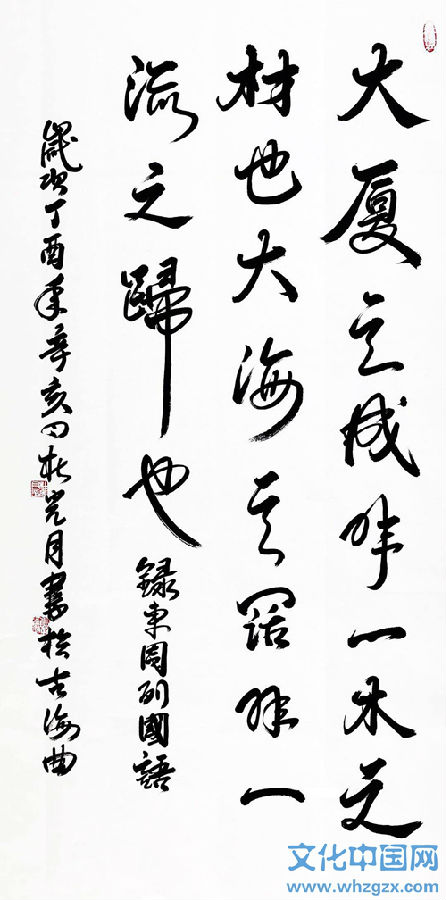 大厦之成非一木之
材也大海之阔非一
流之歸也
錄東周列國語
歲次丁酉年辛亥月書於古海曲
文化中国网
www.whzgzx.com